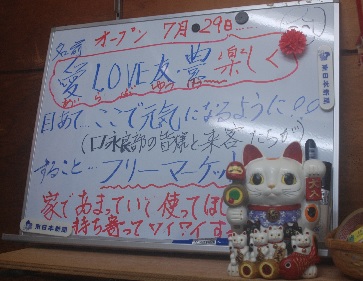 名前 オープン 7月29日
愛LOVE友 楽しく
目あて…ここで元気になるように!!
(口永良部の皆様と来客たちが)
すること…フリーマーケット
家であまっていて使ってほし
持ち寄ってワイワイす
南日本新聞
南日本新聞